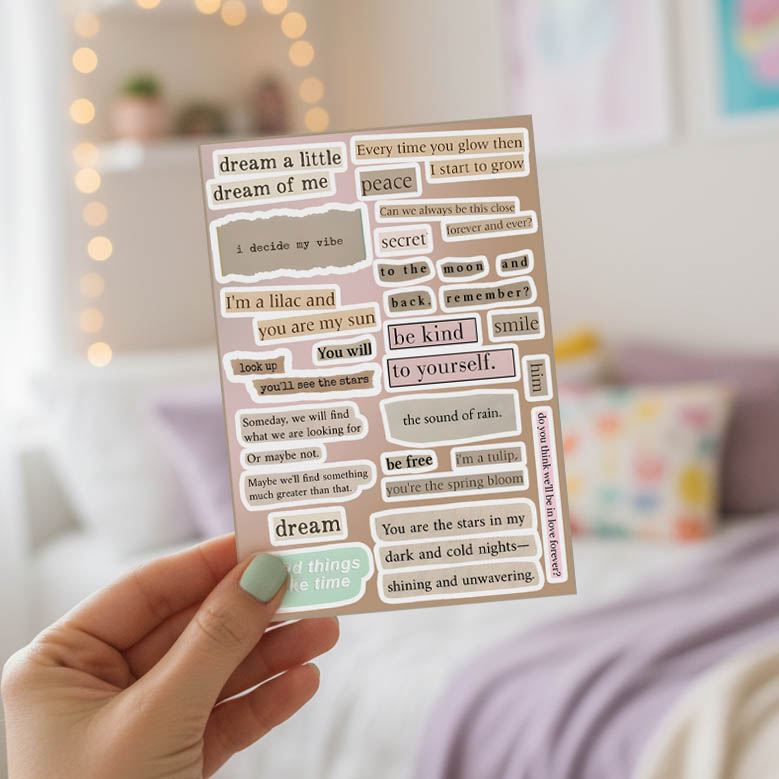 dream a little
dream of me
Every time you glow then
I start to grow
peace
i decide my vibe
Can we always be this close
forever and ever?
secret
to the moon and
back, remember?
I'm a lilac and
you are my sun
be kind
to yourself.
smile
You will
look up
you'll see the stars
him
Someday, we will find
what we are looking for
Or maybe not.
Maybe we'll find something
much greater than that.
the sound of rain.
be free
i'm a tulip,
you're the spring bloom
do you think we'll be in love forever?
dream
things
time
You are the stars in my
dark and cold nights—
shining and unwavering.